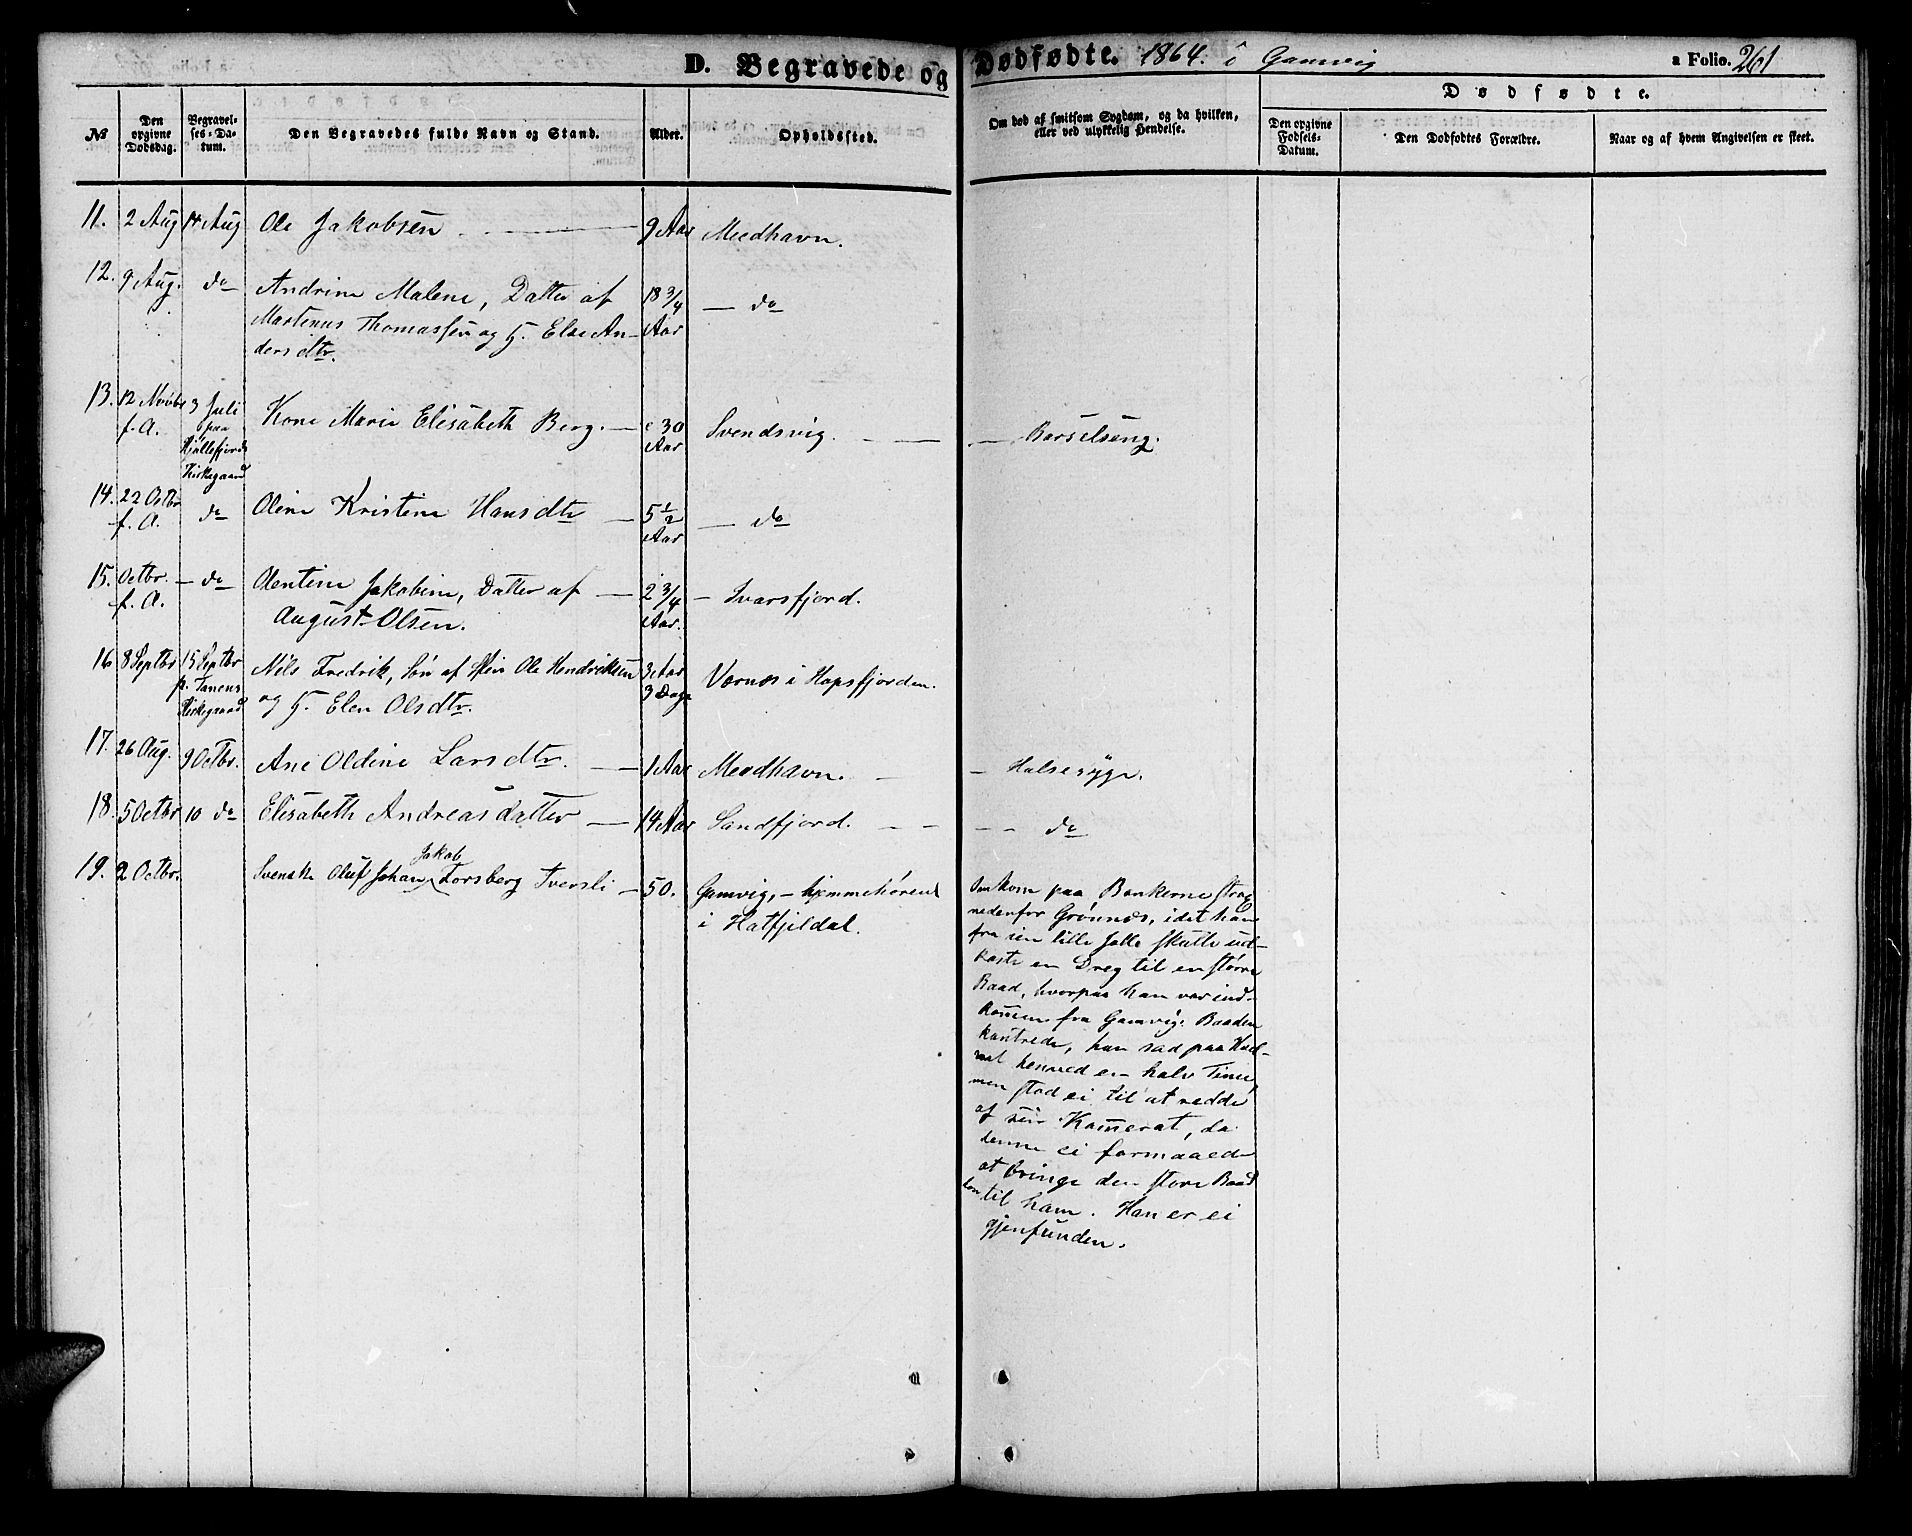 D. Begravede og Dødfødte. 1864. i Gamvig a Folio. 261
Dødfødte.
№ Den opgivne Dødsdag. Begravelses-Datum. Den Begravedes fulde Navn og Stand. Alder. Opholdssted. Om død af smitsom Sygdom, og da hvilken, eller ved ulykkelig Hendelse. Den opgivne Fødsels-Datum. Den Dødfødtes Forældre. Naar og af hvem Angivelsen er skeet.
11. 2 Aug 14 Aug Ole Jakobsen — 9 Aar Meedhavn.
12. 9 Aug. do Andrine Malene, Datter af 18 3/4 — do
Martenus Thomassen og H. Else An- Aar
dersdtr.
13. 12 Novbr 3 Juli Kone Marie Elisabeth Berg. — c 30 Svendsvig. — — — Barselseng.
f. A. paa Aar
Kjøllefjords
Kirkegaard
14. 22 Octbr do Oline Kristine Hansdtr — 5 1/2 — do
f. A. Aar
15. Octbr. — do Olentine Jakobine, Datter af — 2 3/4 — Ivarsfjord.
f. A. August Olsen. Aar.
16 8 Septbr 15 Septbr Nils Fredrik, Søn af Ole Hendriksen 3 Aar Værnæs i Hopsfjorden.
p. Tanens og H. Elen Olsdtr. 3 Dage
Kirkegaard
17. 26 Aug. 9 Octbr. Ane Oldine Larsdtr. — 1 Aar Meedhavn. — — Halsesyge.
18. 5 Octbr 10 do Elisabeth Andreasdatter — 14 Aar Sandfjord. — — — — do
Jakob
19. 2 Octbr. Svenske Oluf Johan Forsberg Tversli — 50. Gamvig, — hjemmehørend
i Hatfjeldal.
Omkom paa Bankerne strax
nedenfor Grønnæs, idet han
fra en lille Jolle skulle ud-
kaste en Dreg til en større
Baad, hvorpaa han var ind-
kommen fra Gamvig. Baaden
kantrede, han sad paa Hvel-
vet henved en halv Time,
men stod ei til at redde
af sin Kamerat, da
denne ei formaaede
at bringe den store Baad
hen til ham. Han er ei
gjenfunden.